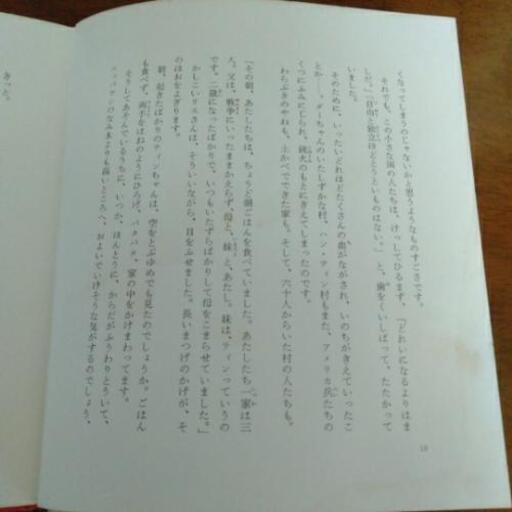 くなってしまうのじゃないかと思うようなものすごさです。
それでも、この小さな国の人たちは、けっしてひるまず、「どれいになるよりはま
しだ。」「自由と独立ほどとうといものはない。」と、歯をくいしばって、たたかって
いました。
そのために、いったいどれほどたくさんの血がながされ、いのちがきえていったこ
とか――。ダーちゃんのいたしずかな村、ハン・ティン村もまた、アメリカ兵たちの
くつにふみにじられ、銃火のもとにきえてしまったのです。
わらぶきのやねも、土かべでできた家も。そして、六十人からいた村の人たちも。
「その朝、あたしたちは、ちょうど朝ごはんを食べていました。あたしたち一家は三
人。父は、戦争にいったままかえらず、母と、妹と、あたし。妹は、ティンっていうの
です。二歳になったばかりで、いつもいたずらばかりして母をこまらせていました。」
かしこいリエさんは、そういいながら、目をふせました。長いまつげのかげが、そ
のほおをよぎります。
朝、起きたばかりのティンちゃんは、空をとぶゆめでも見たのでしょうか。ごはん
も食べず、両手をはねのようにひろげ、パタパタ、家の中をかけまわってます。
そうしてあそんでいるうちに、いつか、ほんとうに、からだがふうわりとういて、
なみ木よりも高いところへ、およいでいけそうな気がするのでしょう。
きった。